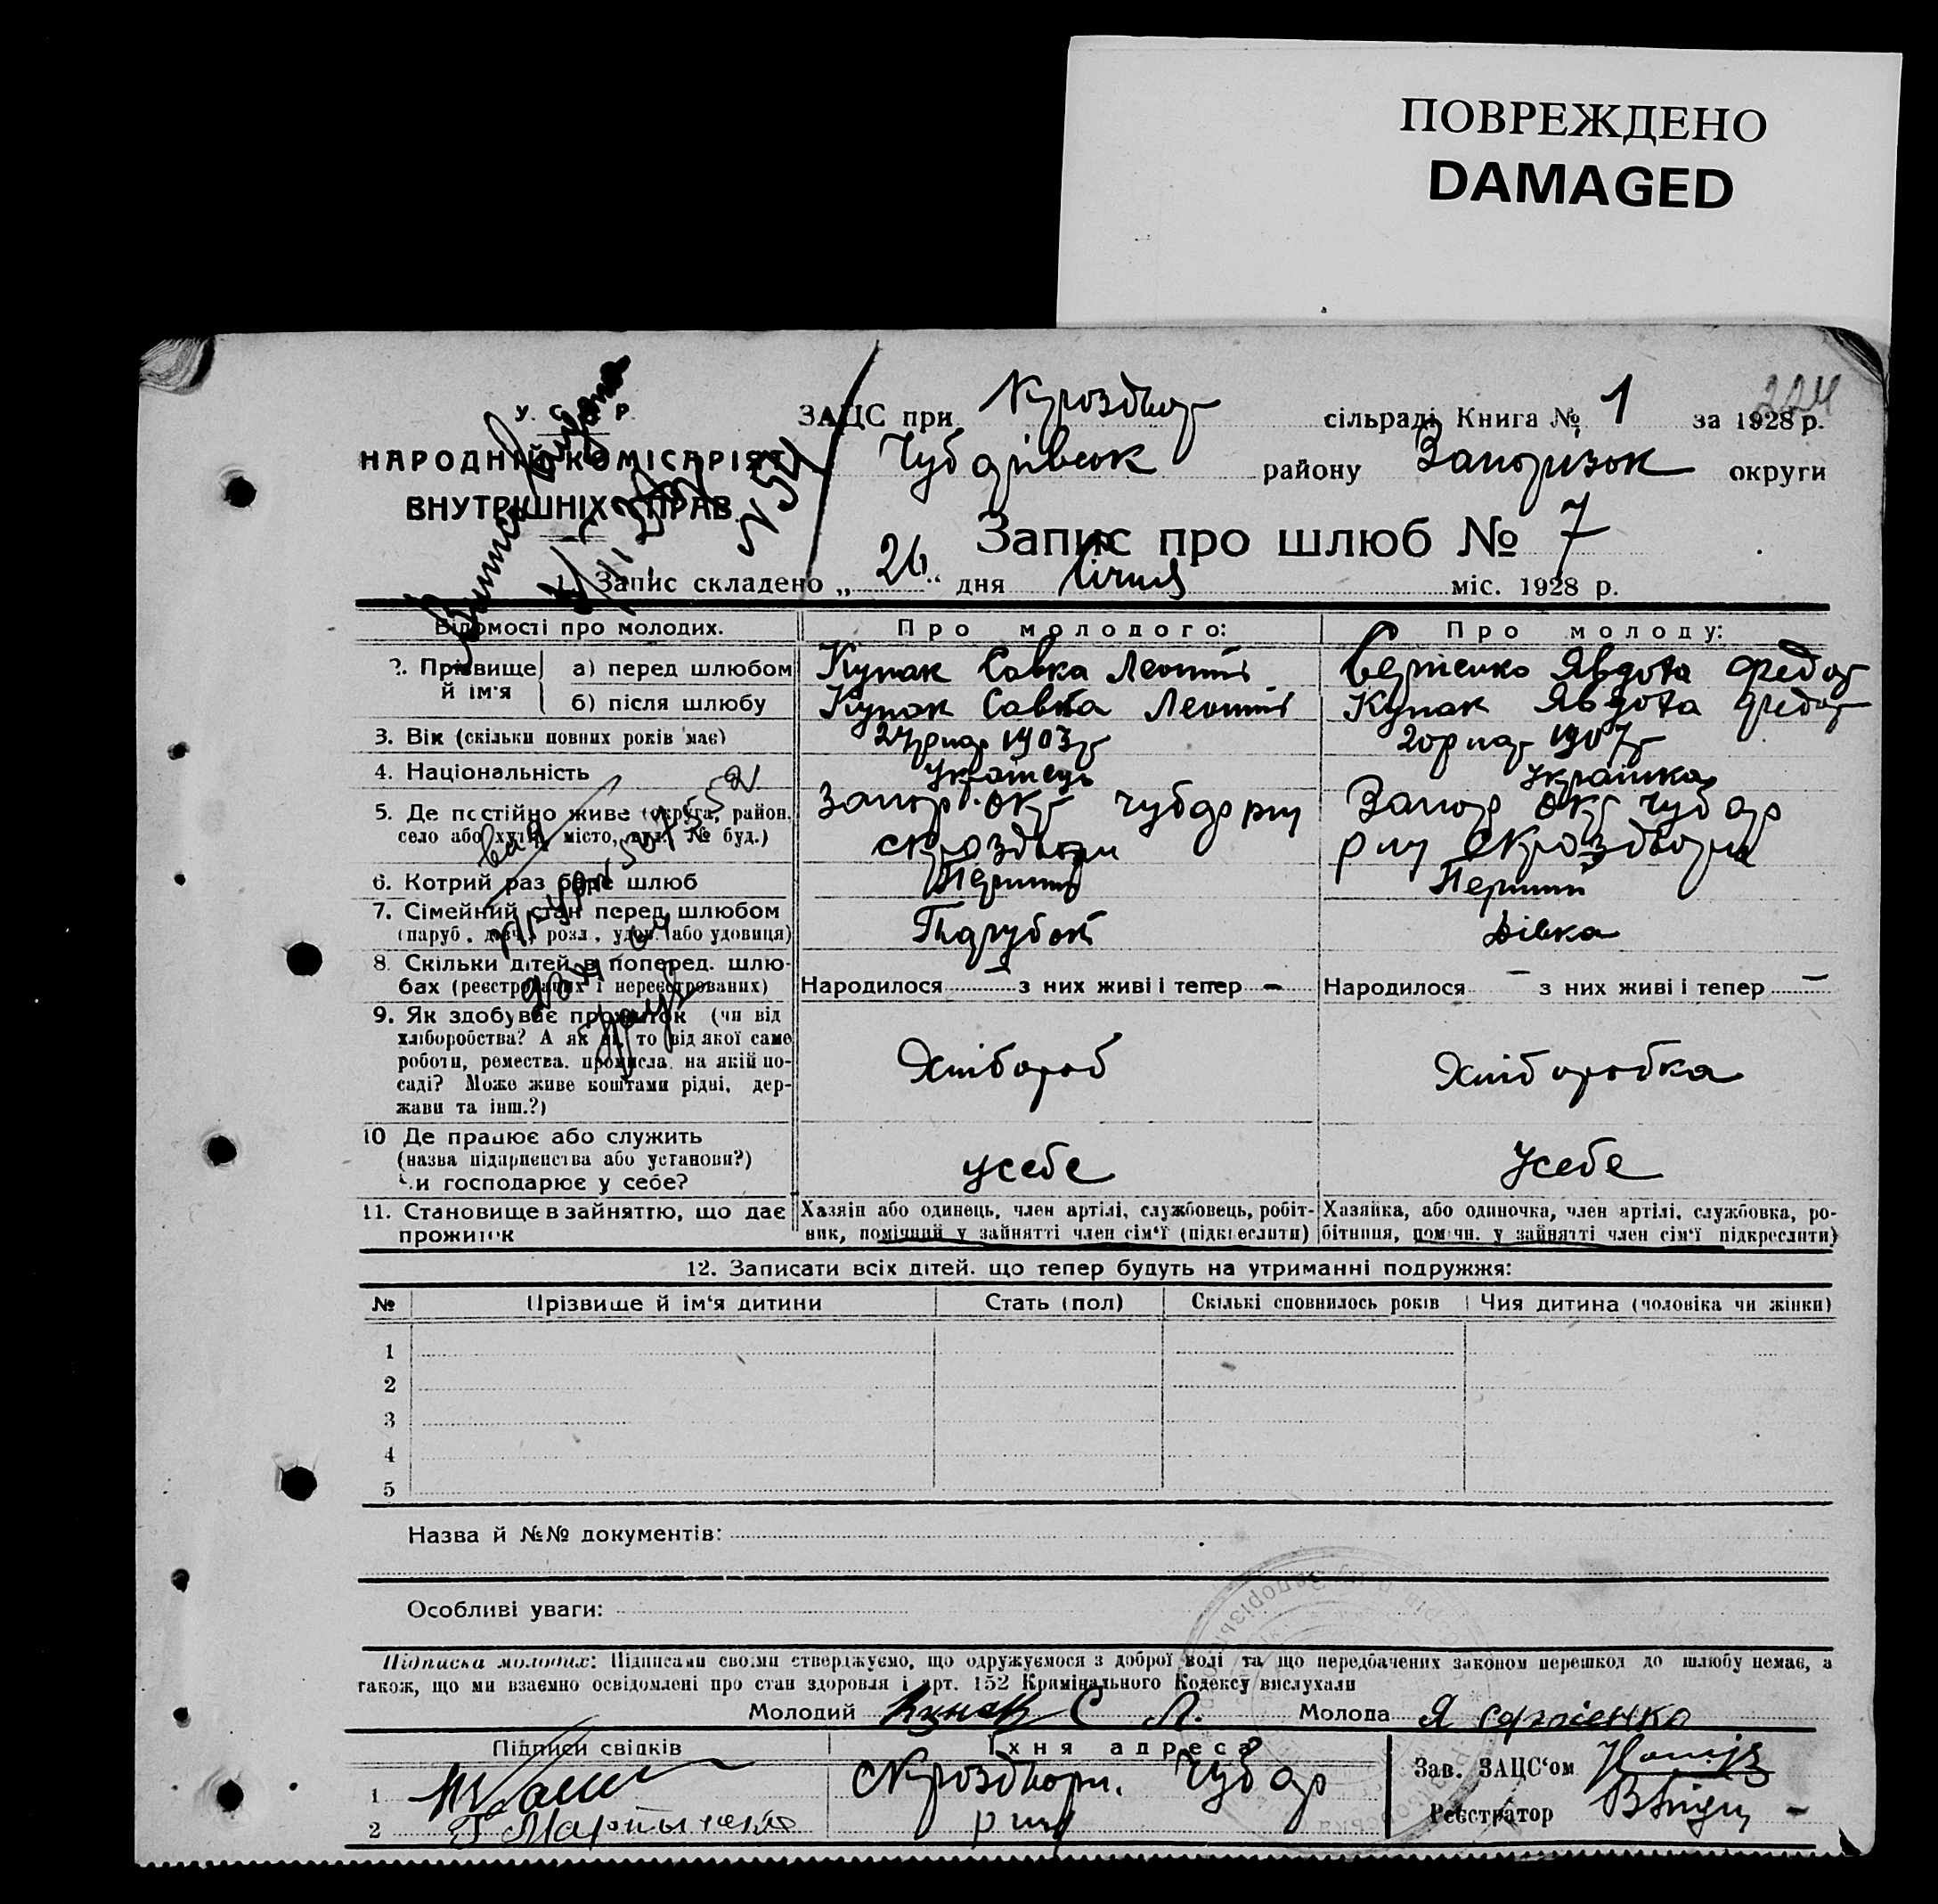 ПОВРЕЖДЕНО
DAMAGED
224
У. С. Р. Р.
НАРОДНІЙ КОМІСАРІЯТ
ВНУТРІШНІХ СПРАВ
N 54
ЗАЦС при сільраді Книга № 1 за 1928 р.
Чубарівськ району Запоризьк округи
Запис про шлюб № 7
1. Запис складено „ 26 “ дня Січня міс. 1928 р.
Відомості про молодих. Про молодого: Про молоду:
2. Прізвище й ім'я
а) перед шлюбом Купак Савка Леонтів Явдота Федор
б) після шлюбу Купак Савка Леонтів Купак Явдота Федор
3. Вік (скільки повних років має) 24 1903 20 1907
4. Національність Українець Українка
5. Де постійно живе (округа, район, Запор. окр Чубар рну Запор окр Чубар
село або хутір, місто, вул. № буд.) рну
6. Котрий раз бере шлюб Перший Перший
7. Сімейний стан перед шлюбом
(паруб., дівч., розл., удов. або удовиця) Парубок Дівка
8. Скільки дітей в поперед. шлю-
бах (реєстрованих і нереєстрованих) Народилося — з них живі і тепер — Народилося — з них живі і тепер —
9. Як здобуває прожиток (чи від
хліборобства? А як ні, то від якої саме
роботи, ремества, промисла, на якій по- Хлібороб Хліборобка
саді? Може живе коштами рідні, дер-
жави та інш.?)
10 Де працює або служить
(назва підприємства або установи?) усебе Усебе
Чи господарює у себе?
11. Становище в зайняттю, що дає Хазяін або одинець, член артілі, службовець, робіт- Хазяйка, або одиночка, член артілі, службовка, ро-
прожиток ник, помічний у зайнятті член сім‘ї (підкреслити) бітниця, помічн. у зайнятті член сім‘ї підкреслити)
12. Записати всіх дітей. що тепер будуть на утриманні подружжя:
№ Прізвище й ім'я дитини Стать (пол) Скількі сповнилось років Чия дитина (чоловіка чи жінки)
1
2
3
4
5
Назва й №№ документів:
Особливі уваги:
Підписка молодих: Підписами своіми стверджуємо, що одружуємося з доброї волі та що передбачених законом перешкод до шлюбу немає, а
також, що ми взаємно освідомлені про стан здоровля і арт. 152 Крамінального Кодексу вислухали
Молодий Купак С Л. Молода Я
Підписи свідків Їхня адреса
1 Чубар Зав. ЗАЦС‘ом
2 Г Мартыненко рну Реєстратор